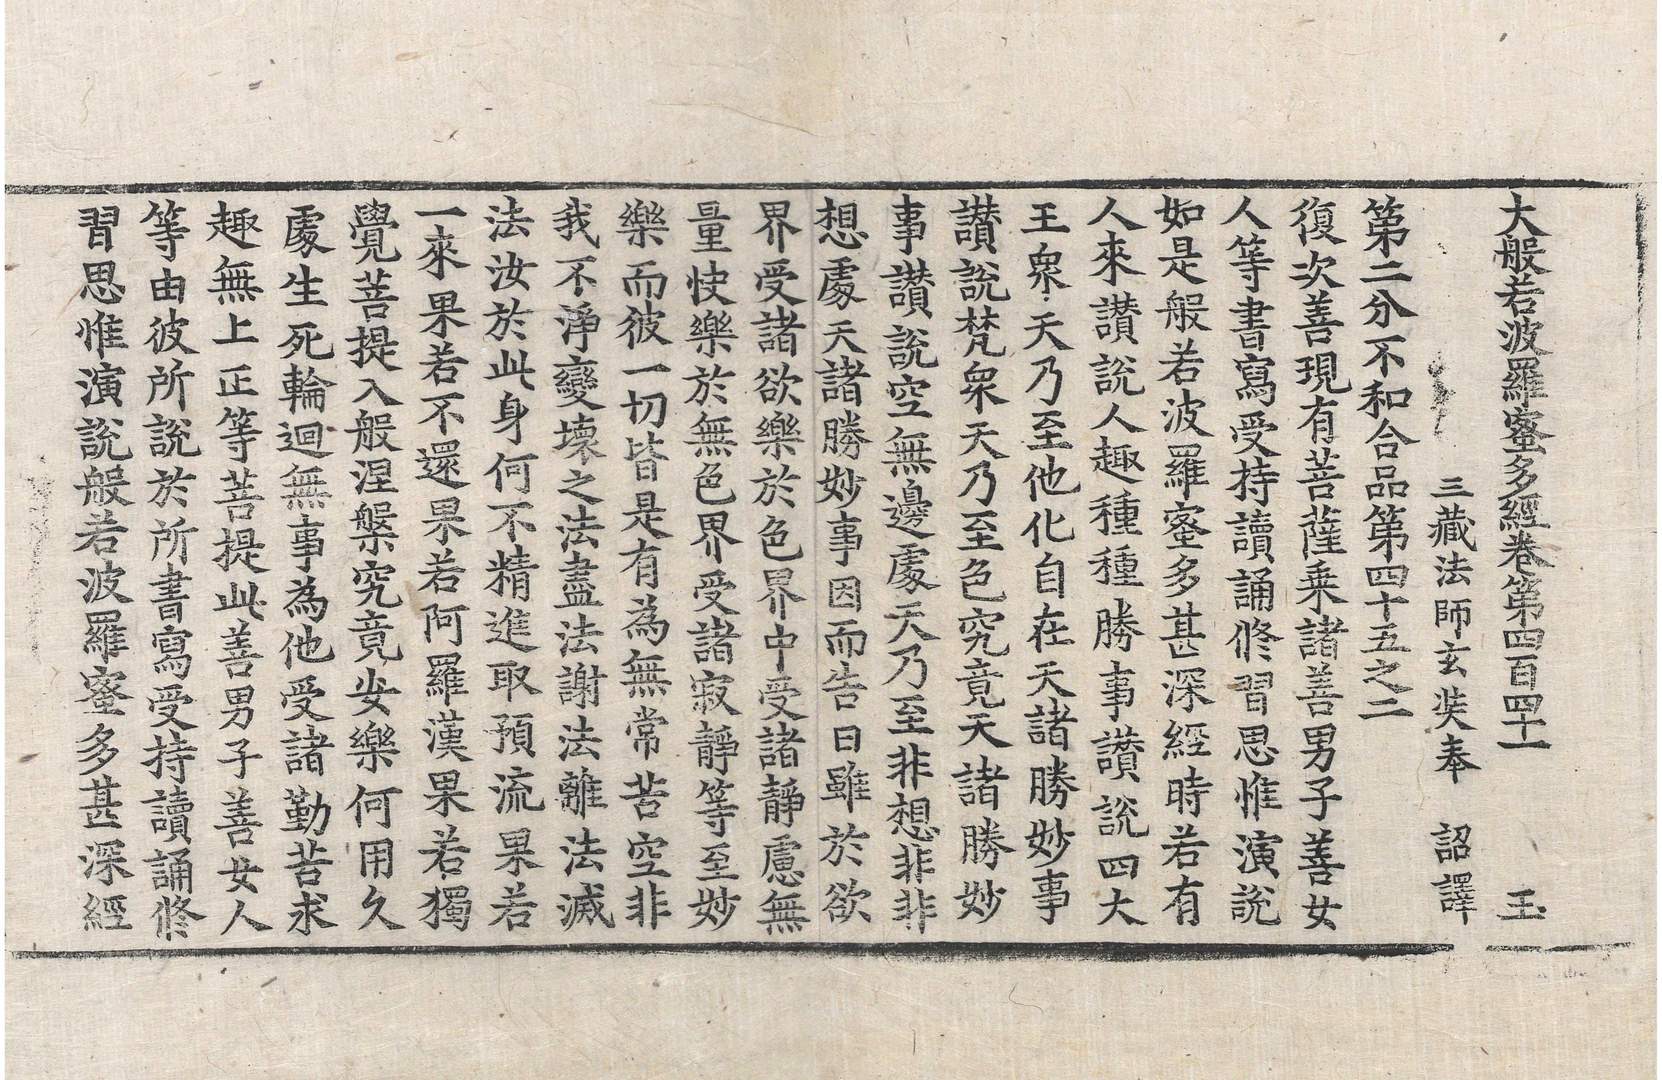 大般若波羅蜜多經卷第四百四十一　玉
三藏法師玄奘奉　詔譯
第二分不和合品第四十五之二
復次善現有菩薩乘諸善男子善女
人等書寫受持讀誦修習思惟演說
如是般若波羅蜜多甚深經時若有
人來讚說人趣種種勝事讚說四大
王衆天乃至他化自在天諸勝妙事
讚說梵衆天乃至色究竟天諸勝妙
事讚說空無邊處天乃至非想非非
想處天諸勝妙事因而告曰雖於欲
界受諸欲樂於色界中受諸靜慮無
量快樂於無色界受諸寂靜等至妙
樂而彼一切皆是有為無常苦空非
我不淨變壞之法盡法謝法離法滅
法汝於此身何不精進取預流果若
一來果若不還果若阿羅漢果若獨
覺菩提入般涅槃究竟安樂何用久
處生死輪迴無事為他受諸勤苦求
趣無上正等菩提此善男子善女人
等由彼所說於所書寫受持讀誦修
習思惟演說般若波羅蜜多甚深經